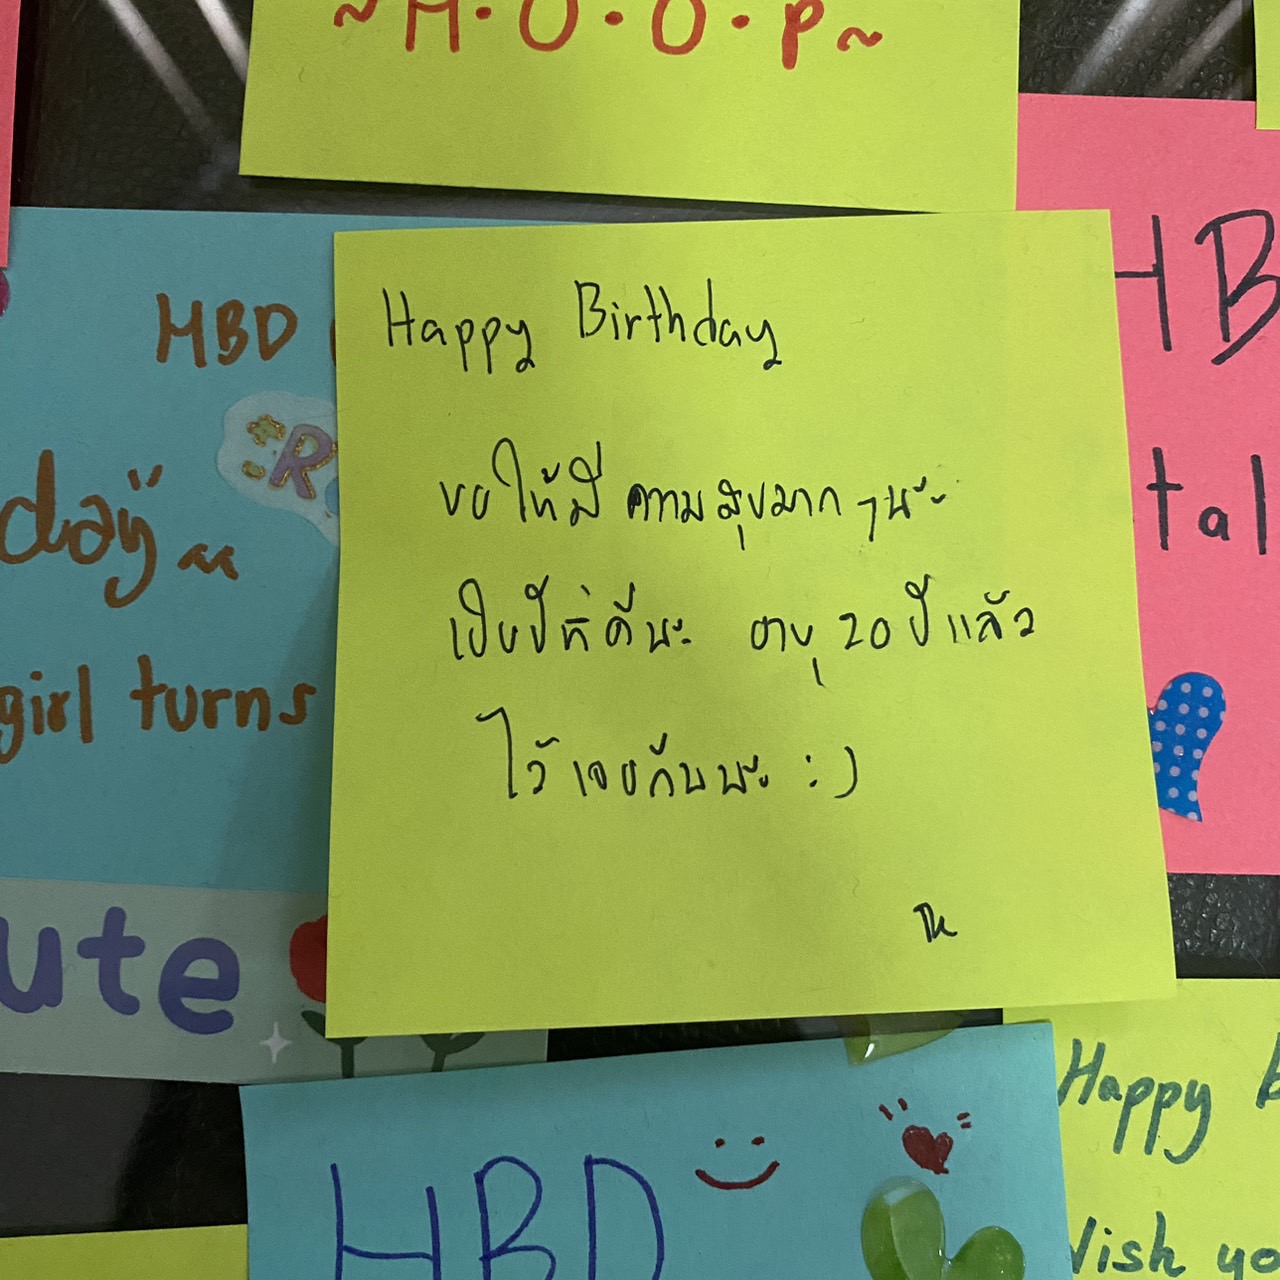 ~H.O.O.P~
HBD
R
day
girl turns
ute
Happy Birthday
ขอให้มีความสุขมากๆนะ
เป็นปีที่ดีนะ อายุ 20 ปีแล้ว
ไว้เจอกันนะ :)
HB
tal
HBD
Happy
Wish yo